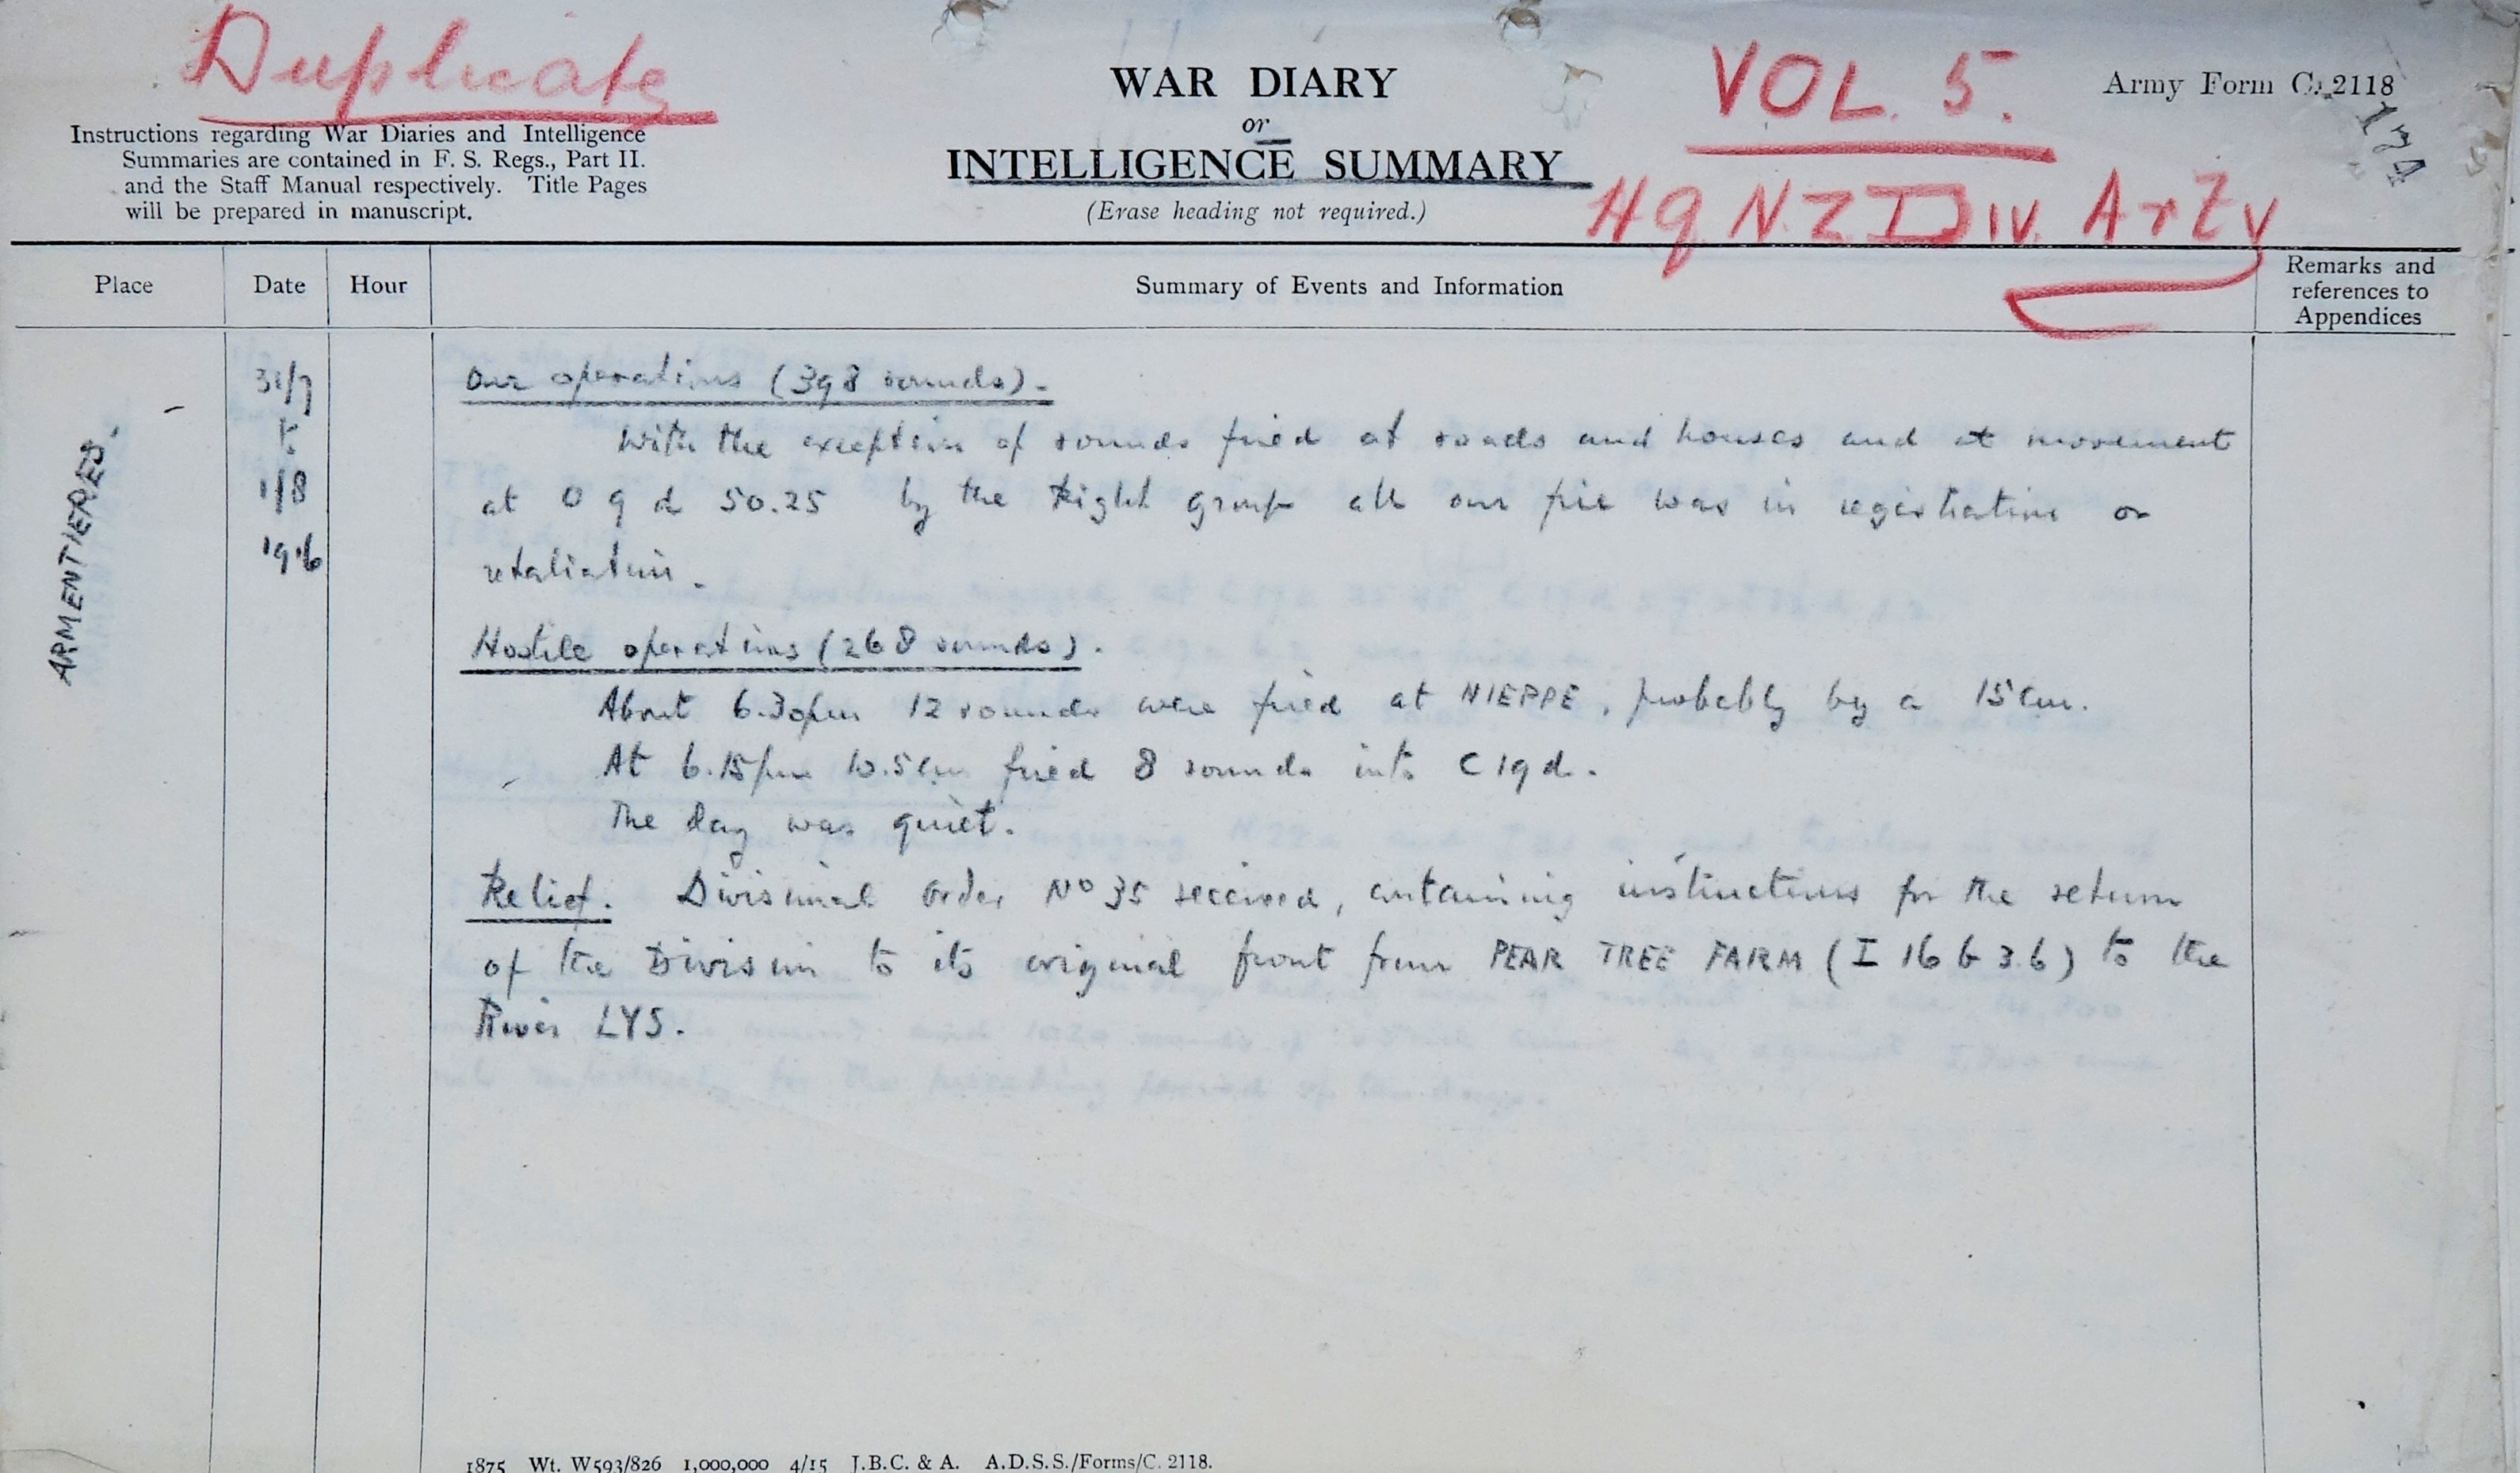 Duplicate
WAR DIARY
or
INTELLIGENCE SUMMARY
(Erase heading not required.)
VOL. 5.
Army Form C. 2118
174
Hq NZ Div. Arty
Instructions regarding War Diaries and Intelligence
Summaries are contained in F. S. Regs., Part II.
and the Staff Manual respectively. Title Pages
will be prepared in manuscript.
Place
Date
Hour
Summary of Events and Information
Remarks and
references to
Appendices
ARMENTIERES.
31/7
to
1/8
1916
Our operations (398 rounds).
With the exception of rounds fired at roads and houses and at movement
at O 9 d 50.25 by the Right group all our fire was in registration or
retaliation.
Hostile operations (268 rounds).
About 6.30pm 12 rounds were fired at NIEPPE, probably by a 15cm.
At 6.15pm 10.5cm fired 8 rounds into C 19 d.
The day was quiet.
Relief. Divisional Order No 35 received, containing instructions for the return
of the Division to its original front from PEAR TREE FARM (I 16 b 3.6) to the
River LYS.
1875 Wt. W593/826 1,000,000 4/15 J.B.C. & A. A.D.S.S./Forms/C. 2118.